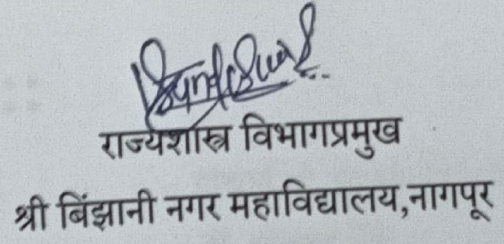 राज्यशास्त्र विभागप्रमुख
श्री बिंझानी नगर महाविद्यालय,नागपूर